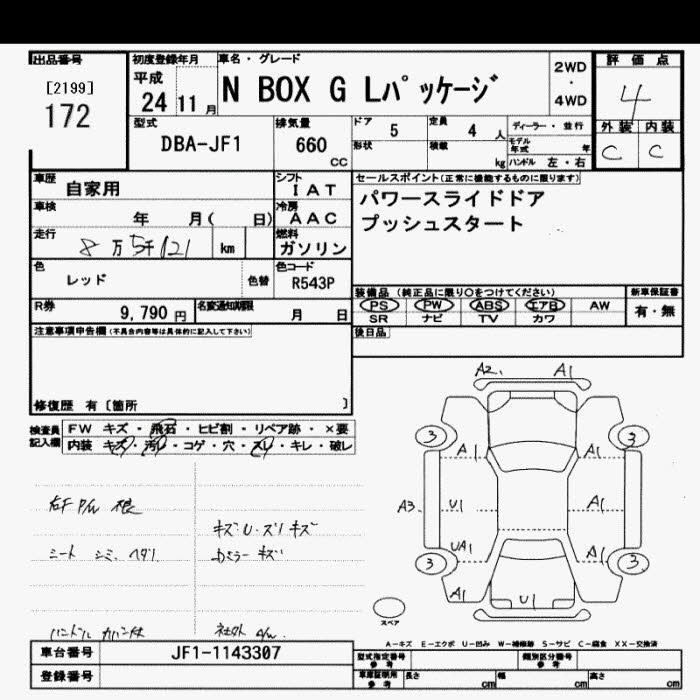 出品番号
[2199]
172
初度登録年月
平成
24 11 月
車名・グレード
N BOX G Lパッケージ
2WD
・
4WD
評価点
4
外装 内装
C C
型式
DBA-JF1
排気量
660
cc
ドア
5
定員
4 人
ディーラー・並行
形状
積載
kg
モデル年式
年
ハンドル 左・右
車歴
自家用
シフト
IAT
セールスポイント(正常に機能するものに限ります)
パワースライドドア
プッシュスタート
車検
年 月( 日)
冷房
AAC
走行
8万5千121 km
燃料
ガソリン
色
レッド
色替
色コード
R543P
装備品 (純正品に限り○をつけてください)
新車保証書
PS PW ABS エアB AW
有・無
SR ナビ TV カワ
R券
9,790 円
名変通知期限
月 日
後日品
注意事項申告欄(不具合内容等は具体的に記入して下さい)
修復歴 有〔箇所 〕
検査員記入欄
FW キズ・飛石・ヒビ割・リペア跡・×要
内装 キズ・汚レ・コゲ・穴・スレ・キレ・破レ
A2. A1
3 3
A1 A1
A3 U1 A1
UA1 A1
3 3
A1 U1
右F P/W 根
キズU・スリキズ
シート シミ、ヘタリ
カミラー キズ
社外 A/W
スペア
A-キズ E-エクボ U-凹み W-補修跡 S-サビ C-腐食 XX-交換済
車台番号
JF1-1143307
型式指定番号
参考
類別区分番号
参考
登録番号
車庫証明用
参考
長さ cm
幅 cm
高さ cm